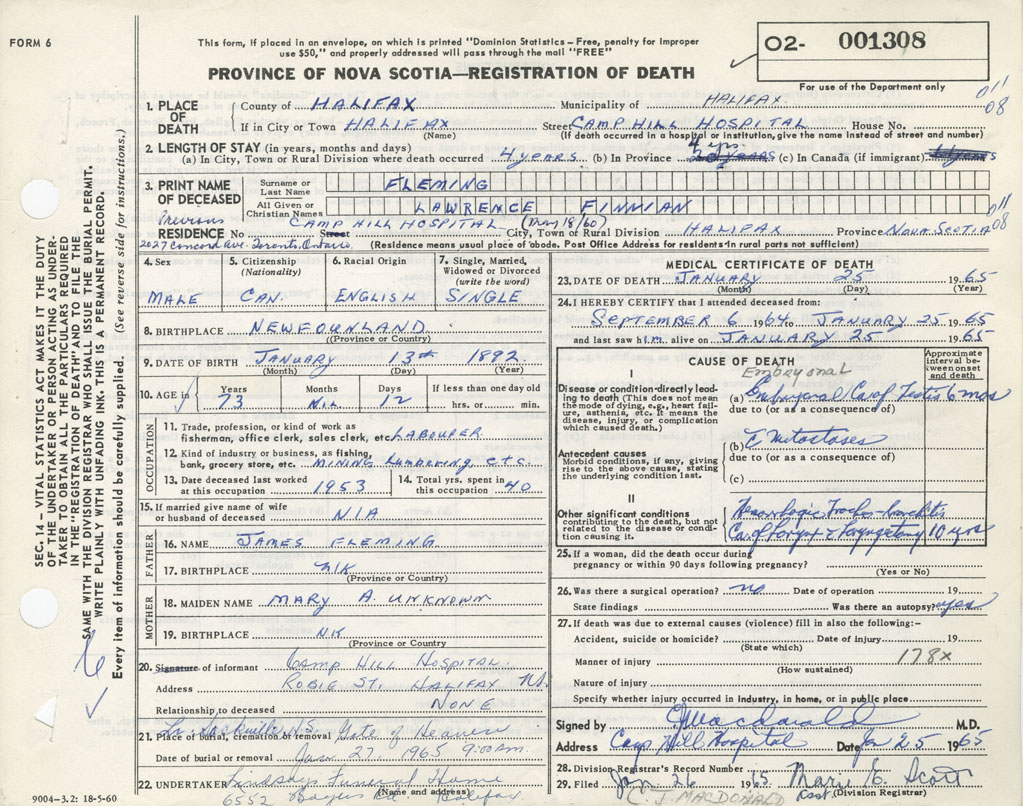 FORM 6
This form, if placed in an envelope, on which is printed "Dominion Statistics – Free, penalty for improper
use $50," and properly addressed will pass through the mail "FREE"
PROVINCE OF NOVA SCOTIA—REGISTRATION OF DEATH
02- 001308
For use of the Department only
011
08
1. PLACE OF DEATH
County of HALIFAX Municipality of HALIFAX
If in City or Town HALIFAX Street CAMP HILL HOSPITAL House No.
(Name) (If death occurred in a hospital or institution, give the name instead of street and number)
2. LENGTH OF STAY (in years, months and days)
(a) In City, Town or Rural Division where death occurred 4 years (b) In Province 4 yrs (c) In Canada (if immigrant)
3. PRINT NAME OF DECEASED
Surname or Last Name FLEMING
All Given or Christian Names LAWRENCE FINNIAN
011
08
Previous CAMP HILL HOSPITAL (May 18/60)
RESIDENCE No Street City, Town or Rural Division HALIFAX Province NOVA SCOTIA
2027 Concord Ave. Toronto, Ontario (Residence means usual place of abode. Post Office Address for residents in rural parts not sufficient)
4. Sex MALE
5. Citizenship (Nationality) CAN.
6. Racial Origin ENGLISH
7. Single, Married, Widowed or Divorced (write the word) SINGLE
8. BIRTHPLACE NEWFOUNLAND
(Province or Country)
9. DATE OF BIRTH JANUARY 13th 1892
(Month) (Day) (Year)
10. AGE in Years 73 Months NIL Days 12 If less than one day old hrs. or min.
OCCUPATION
11. Trade, profession, or kind of work as
fisherman, office clerk, sales clerk, etc. LABOURER
12. Kind of industry or business, as fishing,
bank, grocery store, etc. MINING LUMBERING, ETC.
13. Date deceased last worked at this occupation 1953
14. Total yrs. spent in this occupation 40
15. If married give name of wife
or husband of deceased N/A
FATHER
16. NAME JAMES FLEMING
17. BIRTHPLACE N/K
(Province or Country)
MOTHER
18. MAIDEN NAME MARY A. UNKNOWN
19. BIRTHPLACE N.K
(Province or Country)
20. Signature of informant CAMP HILL HOSPITAL.
Address ROBIE ST. HALIFAX NS.
Relationship to deceased NONE
Lr. Sackville N.S.
21. Place of burial, cremation or removal Gate of Heaven
Date of burial or removal Jan. 27, 1965 9:00 AM.
22. UNDERTAKER Lindsays Funeral Home
(Name and address)
6552 Bayers Rd Halifax
MEDICAL CERTIFICATE OF DEATH
23. DATE OF DEATH JANUARY 25 1965
(Month) (Day) (Year)
24. I HEREBY CERTIFY that I attended deceased from:
SEPTEMBER 6 1964 to JANUARY 25 1965
and last saw him alive on JANUARY 25 1965
CAUSE OF DEATH
Approximate interval between onset and death
Embryonal
I
Disease or condition directly leading to death (This does not mean the mode of dying, e.g., heart failure, asthenia, etc. It means the disease, injury, or complication which caused death.)
(a) Embryonal Ca of Testis 6 mos
due to (or as a consequence of)
Antecedent causes
Morbid conditions, if any, giving rise to the above cause, stating the underlying condition last.
(b) c Metastases
due to (or as a consequence of)
(c)
II
Other significant conditions
contributing to the death, but not related to the disease or condition causing it.
Hemorrhagic Tracheo-bronchitis
Ca of Larynx & Laryngectomy 10 yrs
25. If a woman, did the death occur during
pregnancy or within 90 days following pregnancy?
(Yes or No)
26. Was there a surgical operation? no Date of operation 19
State findings Was there an autopsy? yes
27. If death was due to external causes (violence) fill in also the following:–
Accident, suicide or homicide? Date of injury 19
(State which)
Manner of injury 178X
(How sustained)
Nature of injury
Specify whether injury occurred in industry, in home, or in public place
Signed by CJ Macdonald M.D.
Address Camp Hill Hospital Date Jan 25 1965
28. Division Registrar's Record Number
29. Filed Jan 26 1965 Mary E. Scott
Asst (Division Registrar)
C. J. MACDONALD
SEC. 14 – VITAL STATISTICS ACT MAKES IT THE DUTY
OF THE UNDERTAKER OR PERSON ACTING AS UNDER-
TAKER TO OBTAIN ALL THE PARTICULARS REQUIRED
IN THE "REGISTRATION OF DEATH" AND TO FILE THE
SAME WITH THE DIVISION REGISTRAR WHO SHALL ISSUE THE BURIAL PERMIT.
WRITE PLAINLY WITH UNFADING INK. THIS IS A PERMANENT RECORD.
Every item of information should be carefully supplied. (See reverse side for instructions.)
9004–3.2: 18-5-60